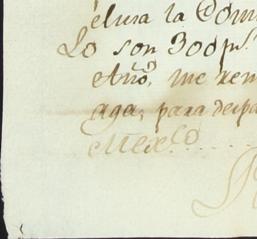 la Com
Lo son 300 ps.
Año, me rem
aga, para despa
Mexco.......